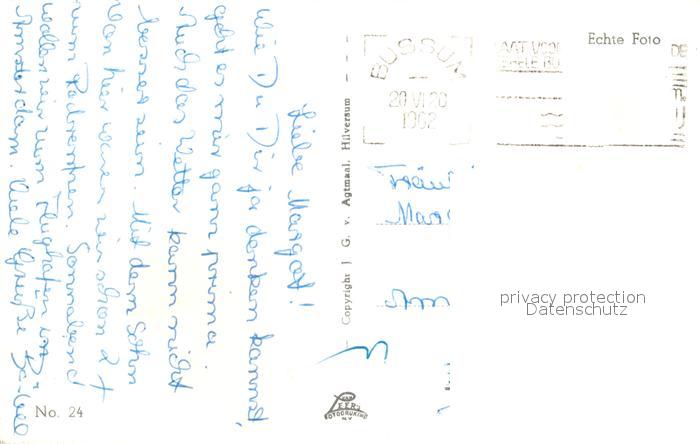 Liebe Margot!
Wie Du Dir ja denken kannst,
geht es mir ganz prima.
Auch das Wetter kann nicht
besser sein. Mit dem Sohn
von hier waren wir schon 2 x
zum Sonnabend
wollen wir zum Flughafen
Amsterdam. Viele Grüße
No. 24
Copyright J. G. v. Agtmaal, Hilversum
BUSSUM
20 VI 20
1962
Echte Foto
Fräul
Mar
Am
privacy protection
Datenschutz
VAN
LEER'S
FOTODRUKIND
N.V.